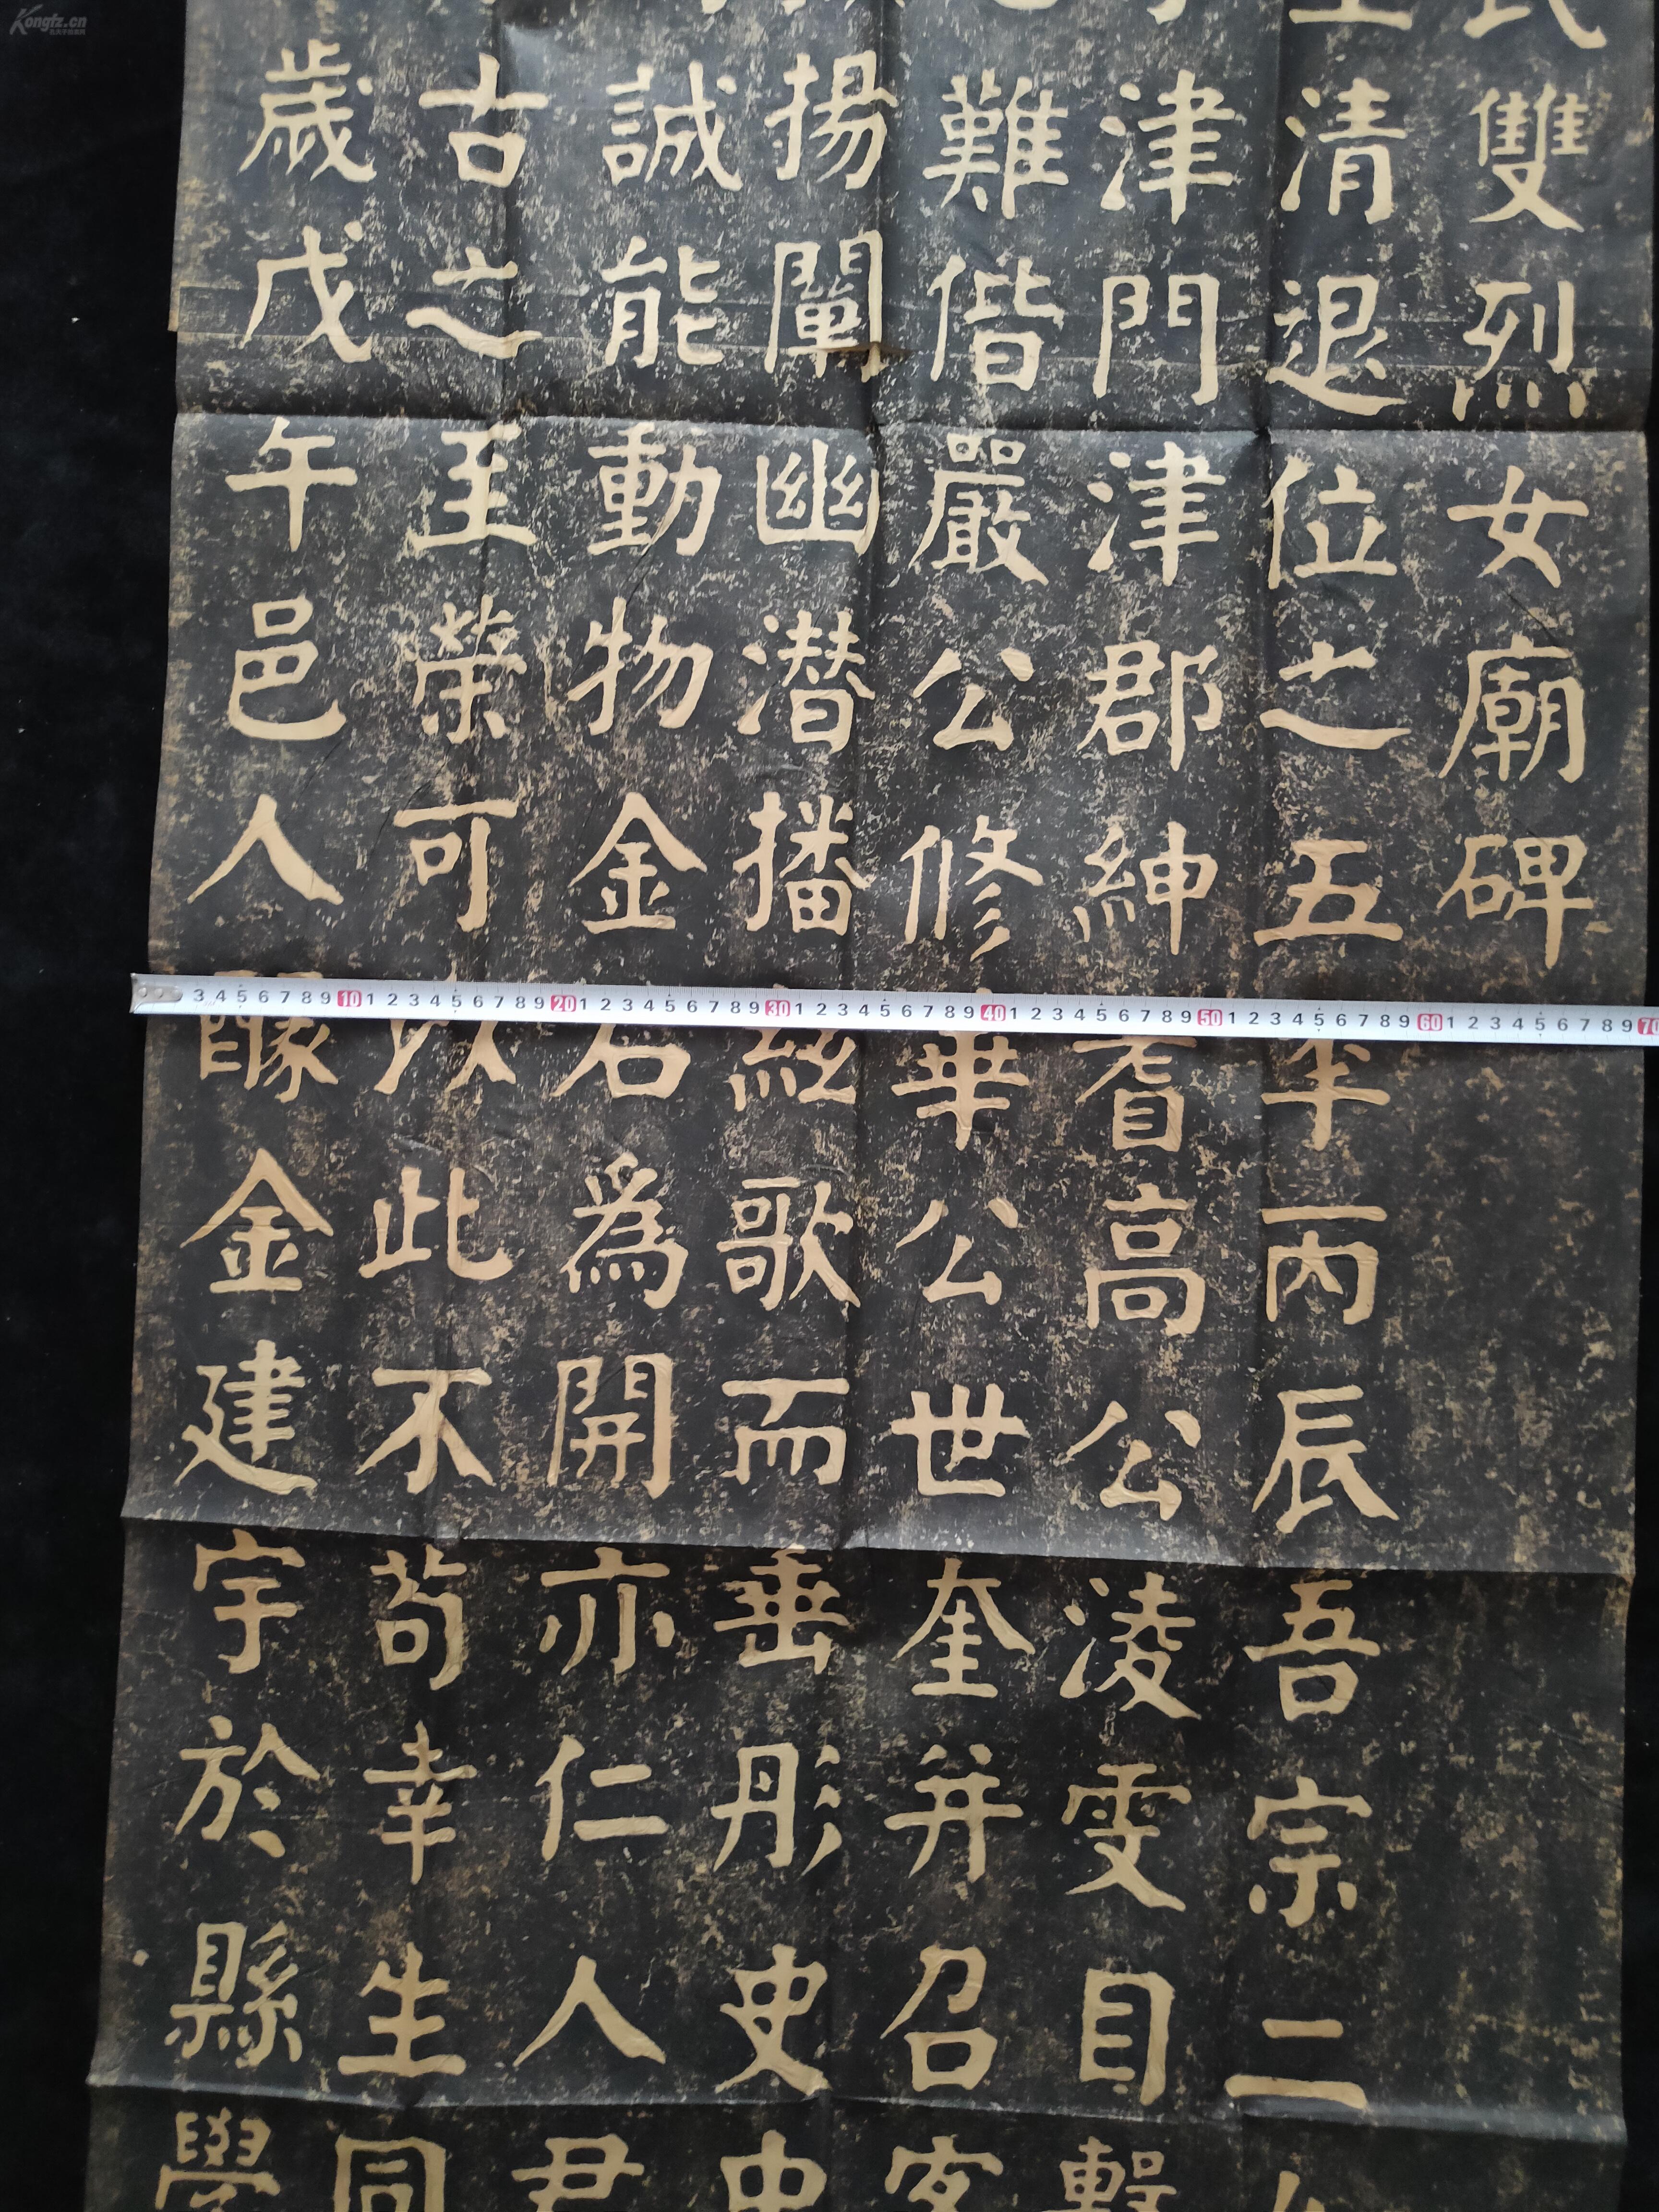 氏雙烈女廟碑
清退位之五年丙辰吾宗二
津門津郡紳耆高公淩雯目擊
難偕嚴公修華公世奎并召客
揚闡幽潛播絃歌而垂彤史史
誠能動物金石為開亦仁人君
古之至榮可以此不苟幸生同
歲戊午邑人醵金建宇於縣學
3 4 5 6 7 8 9 10 1 2 3 4 5 6 7 8 9 20 1 2 3 4 5 6 7 8 9 30 1 2 3 4 5 6 7 8 9 40 1 2 3 4 5 6 7 8 9 50 1 2 3 4 5 6 7 8 9 60 1 2 3 4 5 6 7 8 9 70
Kongfz.cn